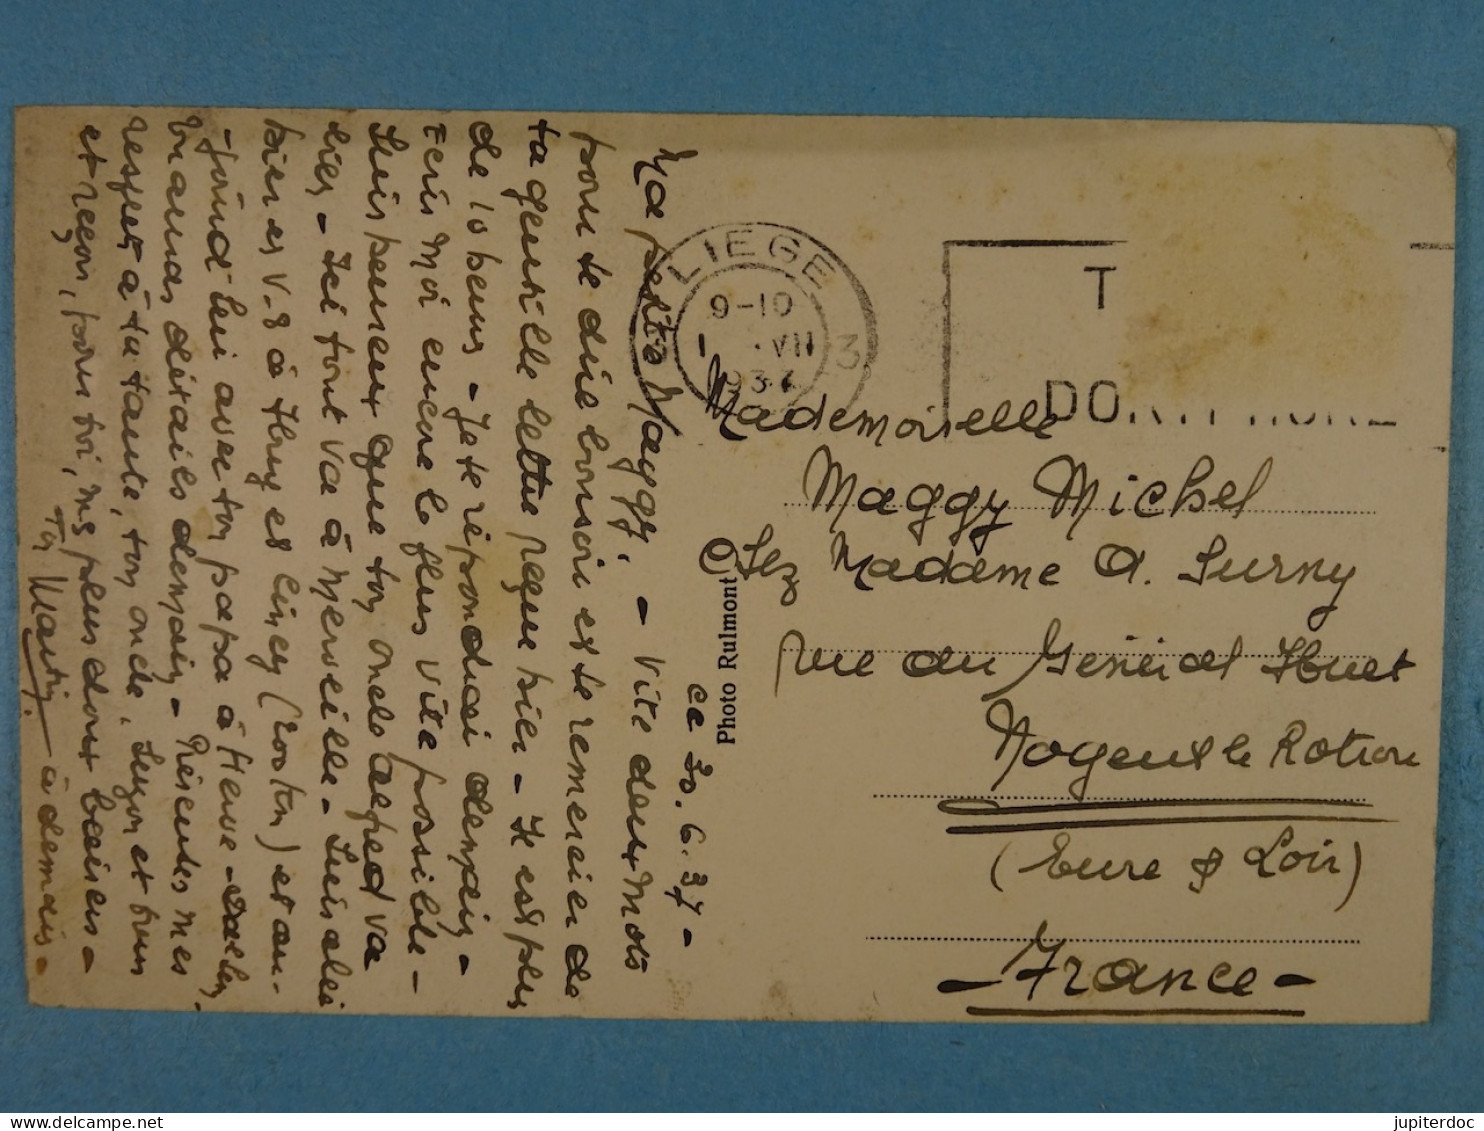 ce 30.6.37 -
Ma petite Maggy, - Vite deux mots
pour te dire bonsoir et te remercier de
ta gentille lettre reçue hier - Je
de 10 hems - Je te répondrai demain -
Ecris moi encore le plus vite possible -
Suis heureux que ton oncle va
Ici tout va à merveille - Suis allé
hier es V-8 à Huy et Ciney et au-
-jourd'hui avec ton papa à
détails demain - Présentes mes
respects à ta tante, ton oncle, Suzon et
et reçois, pour toi, mes plus doux baisers -
Ton à demain -
Photo Rulmont
LIEGE
3
9-10
1 VII
937
T
Mademoiselle
Maggy Michel
Chez Madame A. Surny
rue du Général Huet
Nogent le Rotrou
(Eure & Loir)
- France -
jupiterdoc